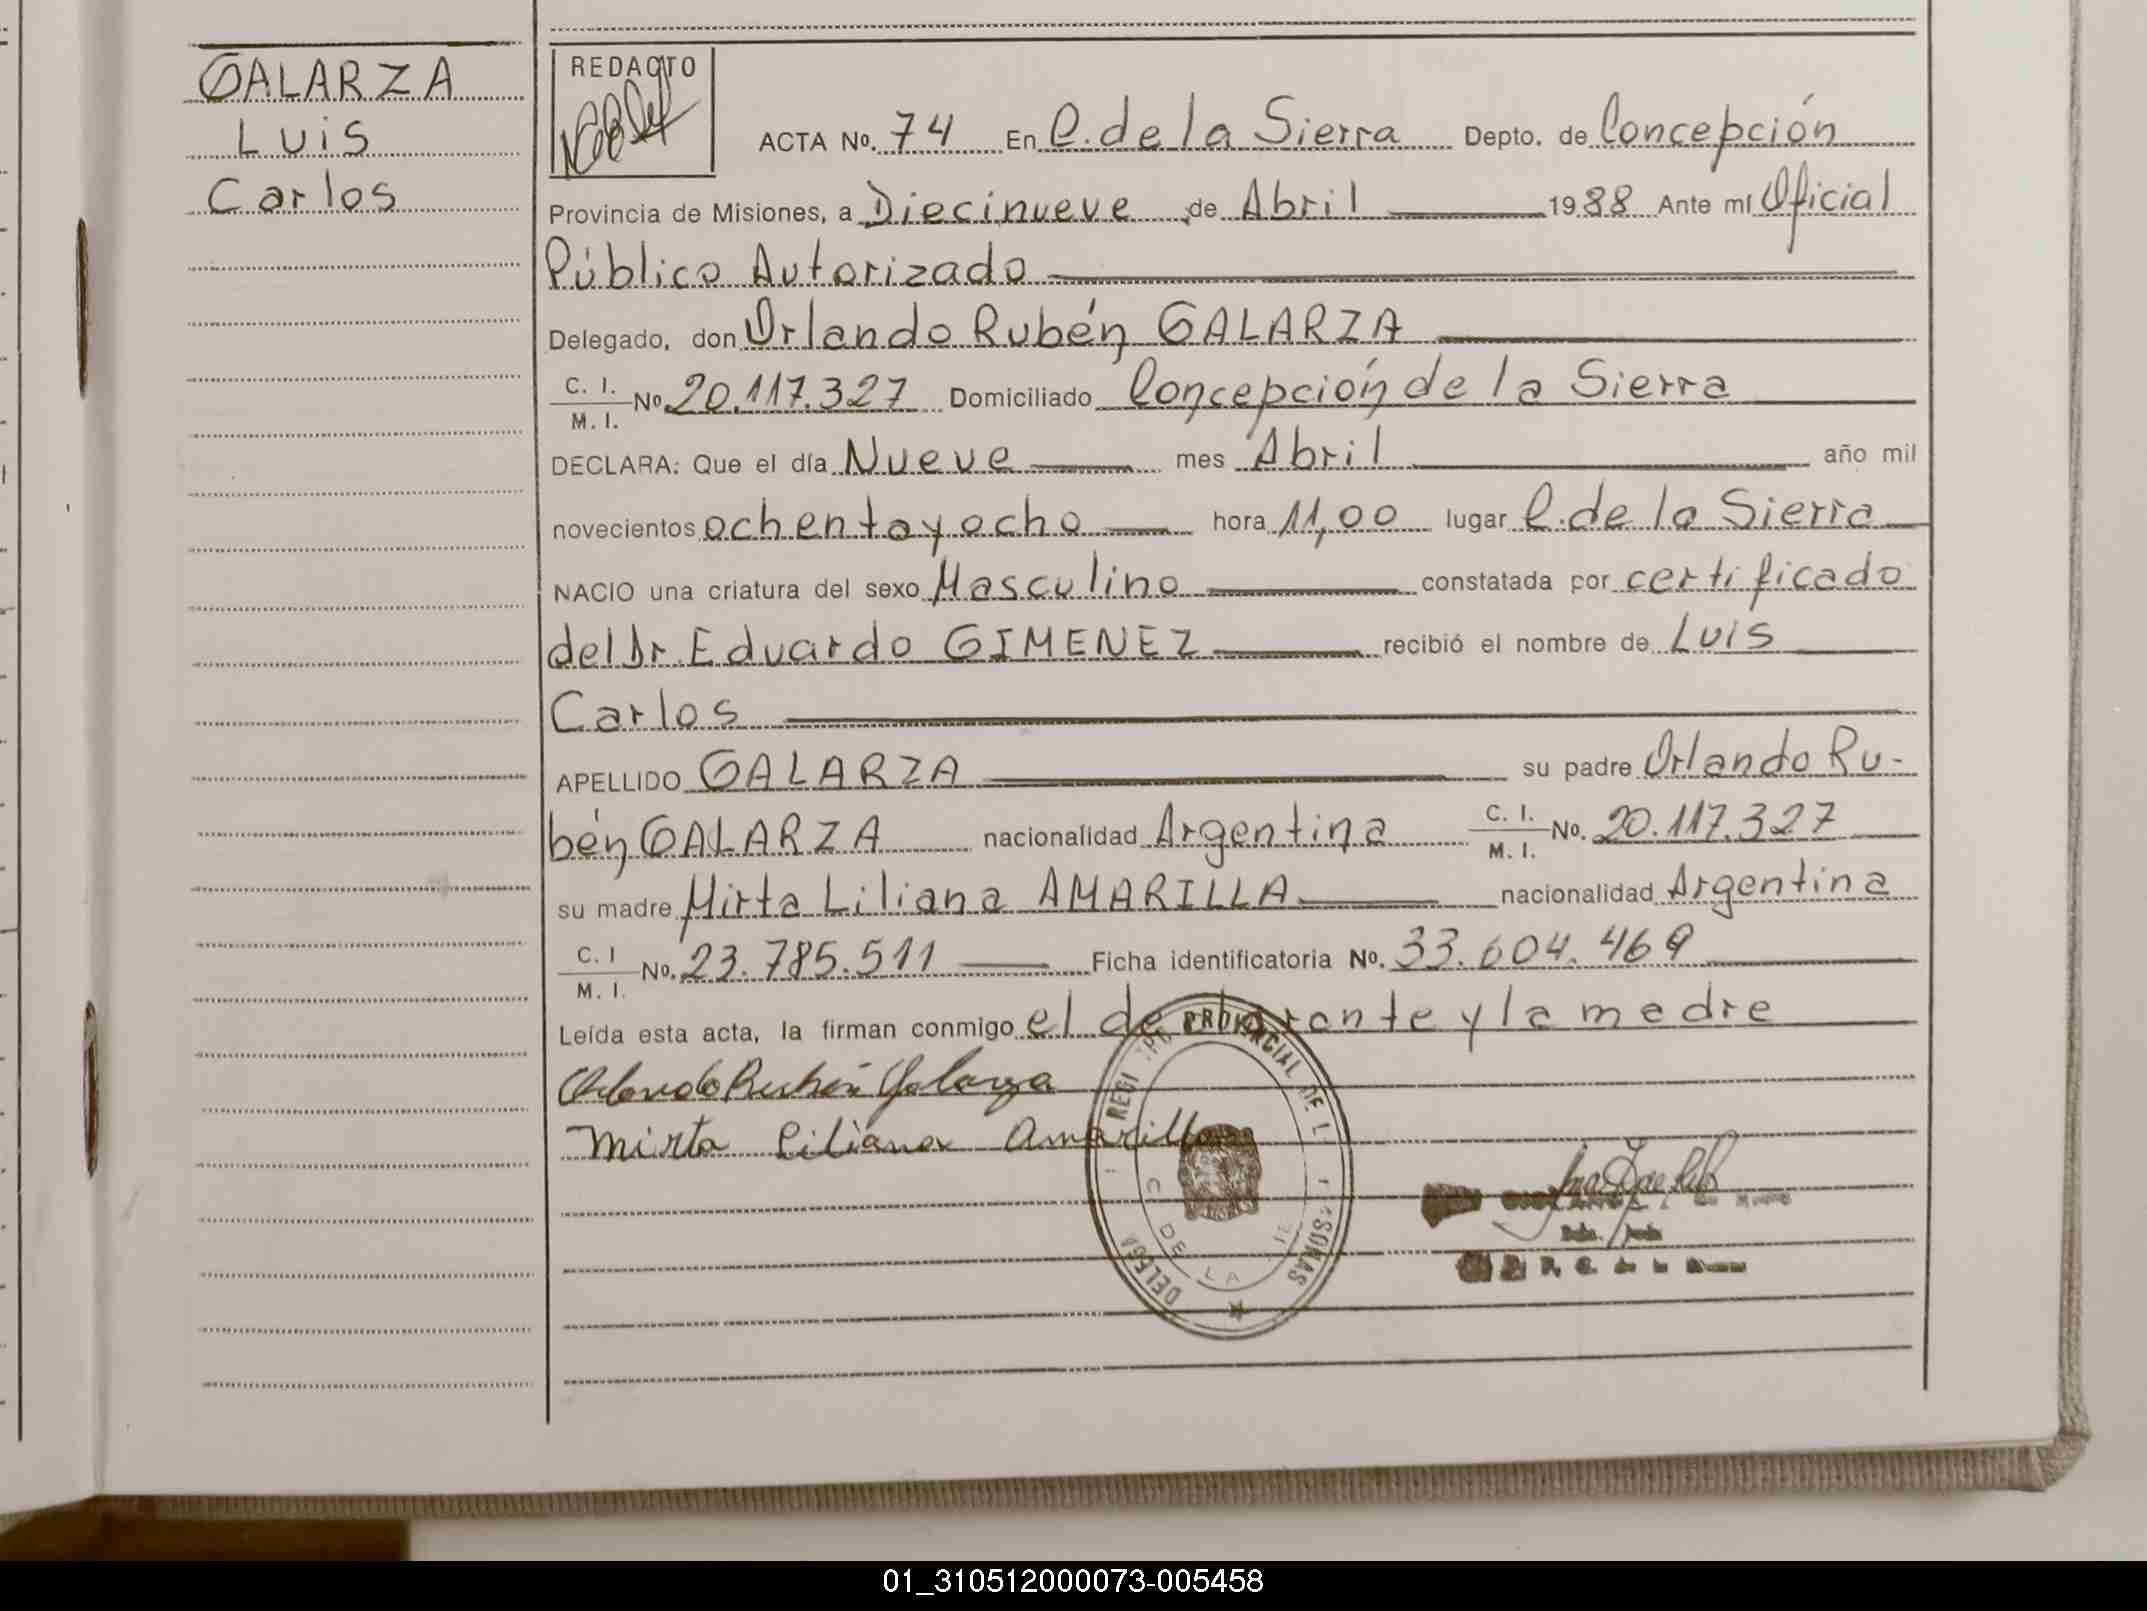 GALARZA
Luis
Carlos
REDACTO
ACTA No. 74 En C. de la Sierra Depto. de Concepción
Provincia de Misiones, a Diecinueve de Abril 1988 Ante mí Oficial
Público Autorizado
Delegado, don Orlando Rubén GALARZA
C. I. M. I. No. 20.117.327 Domiciliado Concepción de la Sierra
DECLARA: Que el día Nueve mes Abril año mil
novecientos ochenta y ocho hora 11,00 lugar C. de la Sierra
NACIO una criatura del sexo Masculino constatada por certificado
del Dr. Eduardo GIMENEZ recibió el nombre de Luis
Carlos
APELLIDO GALARZA su padre Orlando Ru-
bén GALARZA nacionalidad Argentina C. I. M. I. No. 20.117.327
su madre Mirta Liliana AMARILLA nacionalidad Argentina
C. I M. I. No. 23.785.511 Ficha identificatoria No. 33.604.469
Leída esta acta, la firman conmigo el declarante y la madre
Orlando Rubén Galarza
Mirta Liliana Amarilla
PROVINCIAL DE
DELEGA
C DE LA
01_310512000073-005458